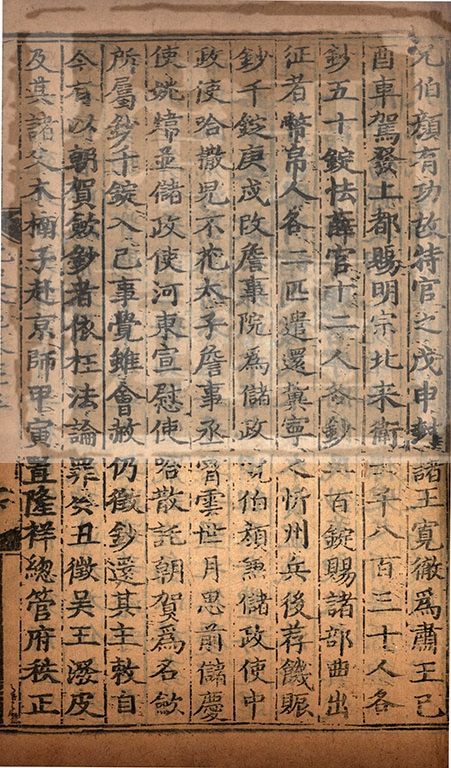 兄伯顏有功故特官之戊申封諸王寬徹爲肅王己
酉車駕發上都賜明宗北来衛士千八百三十人各
鈔五十錠怯薛官十二人各鈔二百錠賜諸部曲出
征者幣帛人各二匹遣還冀寧之忻州兵後荐饑賑
鈔千錠庚戌改詹事院爲儲政院伯顏兼儲政使中
政使哈撒児不花太子詹事丞霄雲世月思前儲慶
使姚煒並儲政使河東宣慰使哈散託朝賀爲名斂
所屬鈔千錠入己事覺雖會赦仍徵鈔還其主敕自
今有以朝賀斂鈔者依枉法論罪癸丑徵吳王潑皮
及其諸父木楠子赴京師甲寅置隆祥總管府秩正